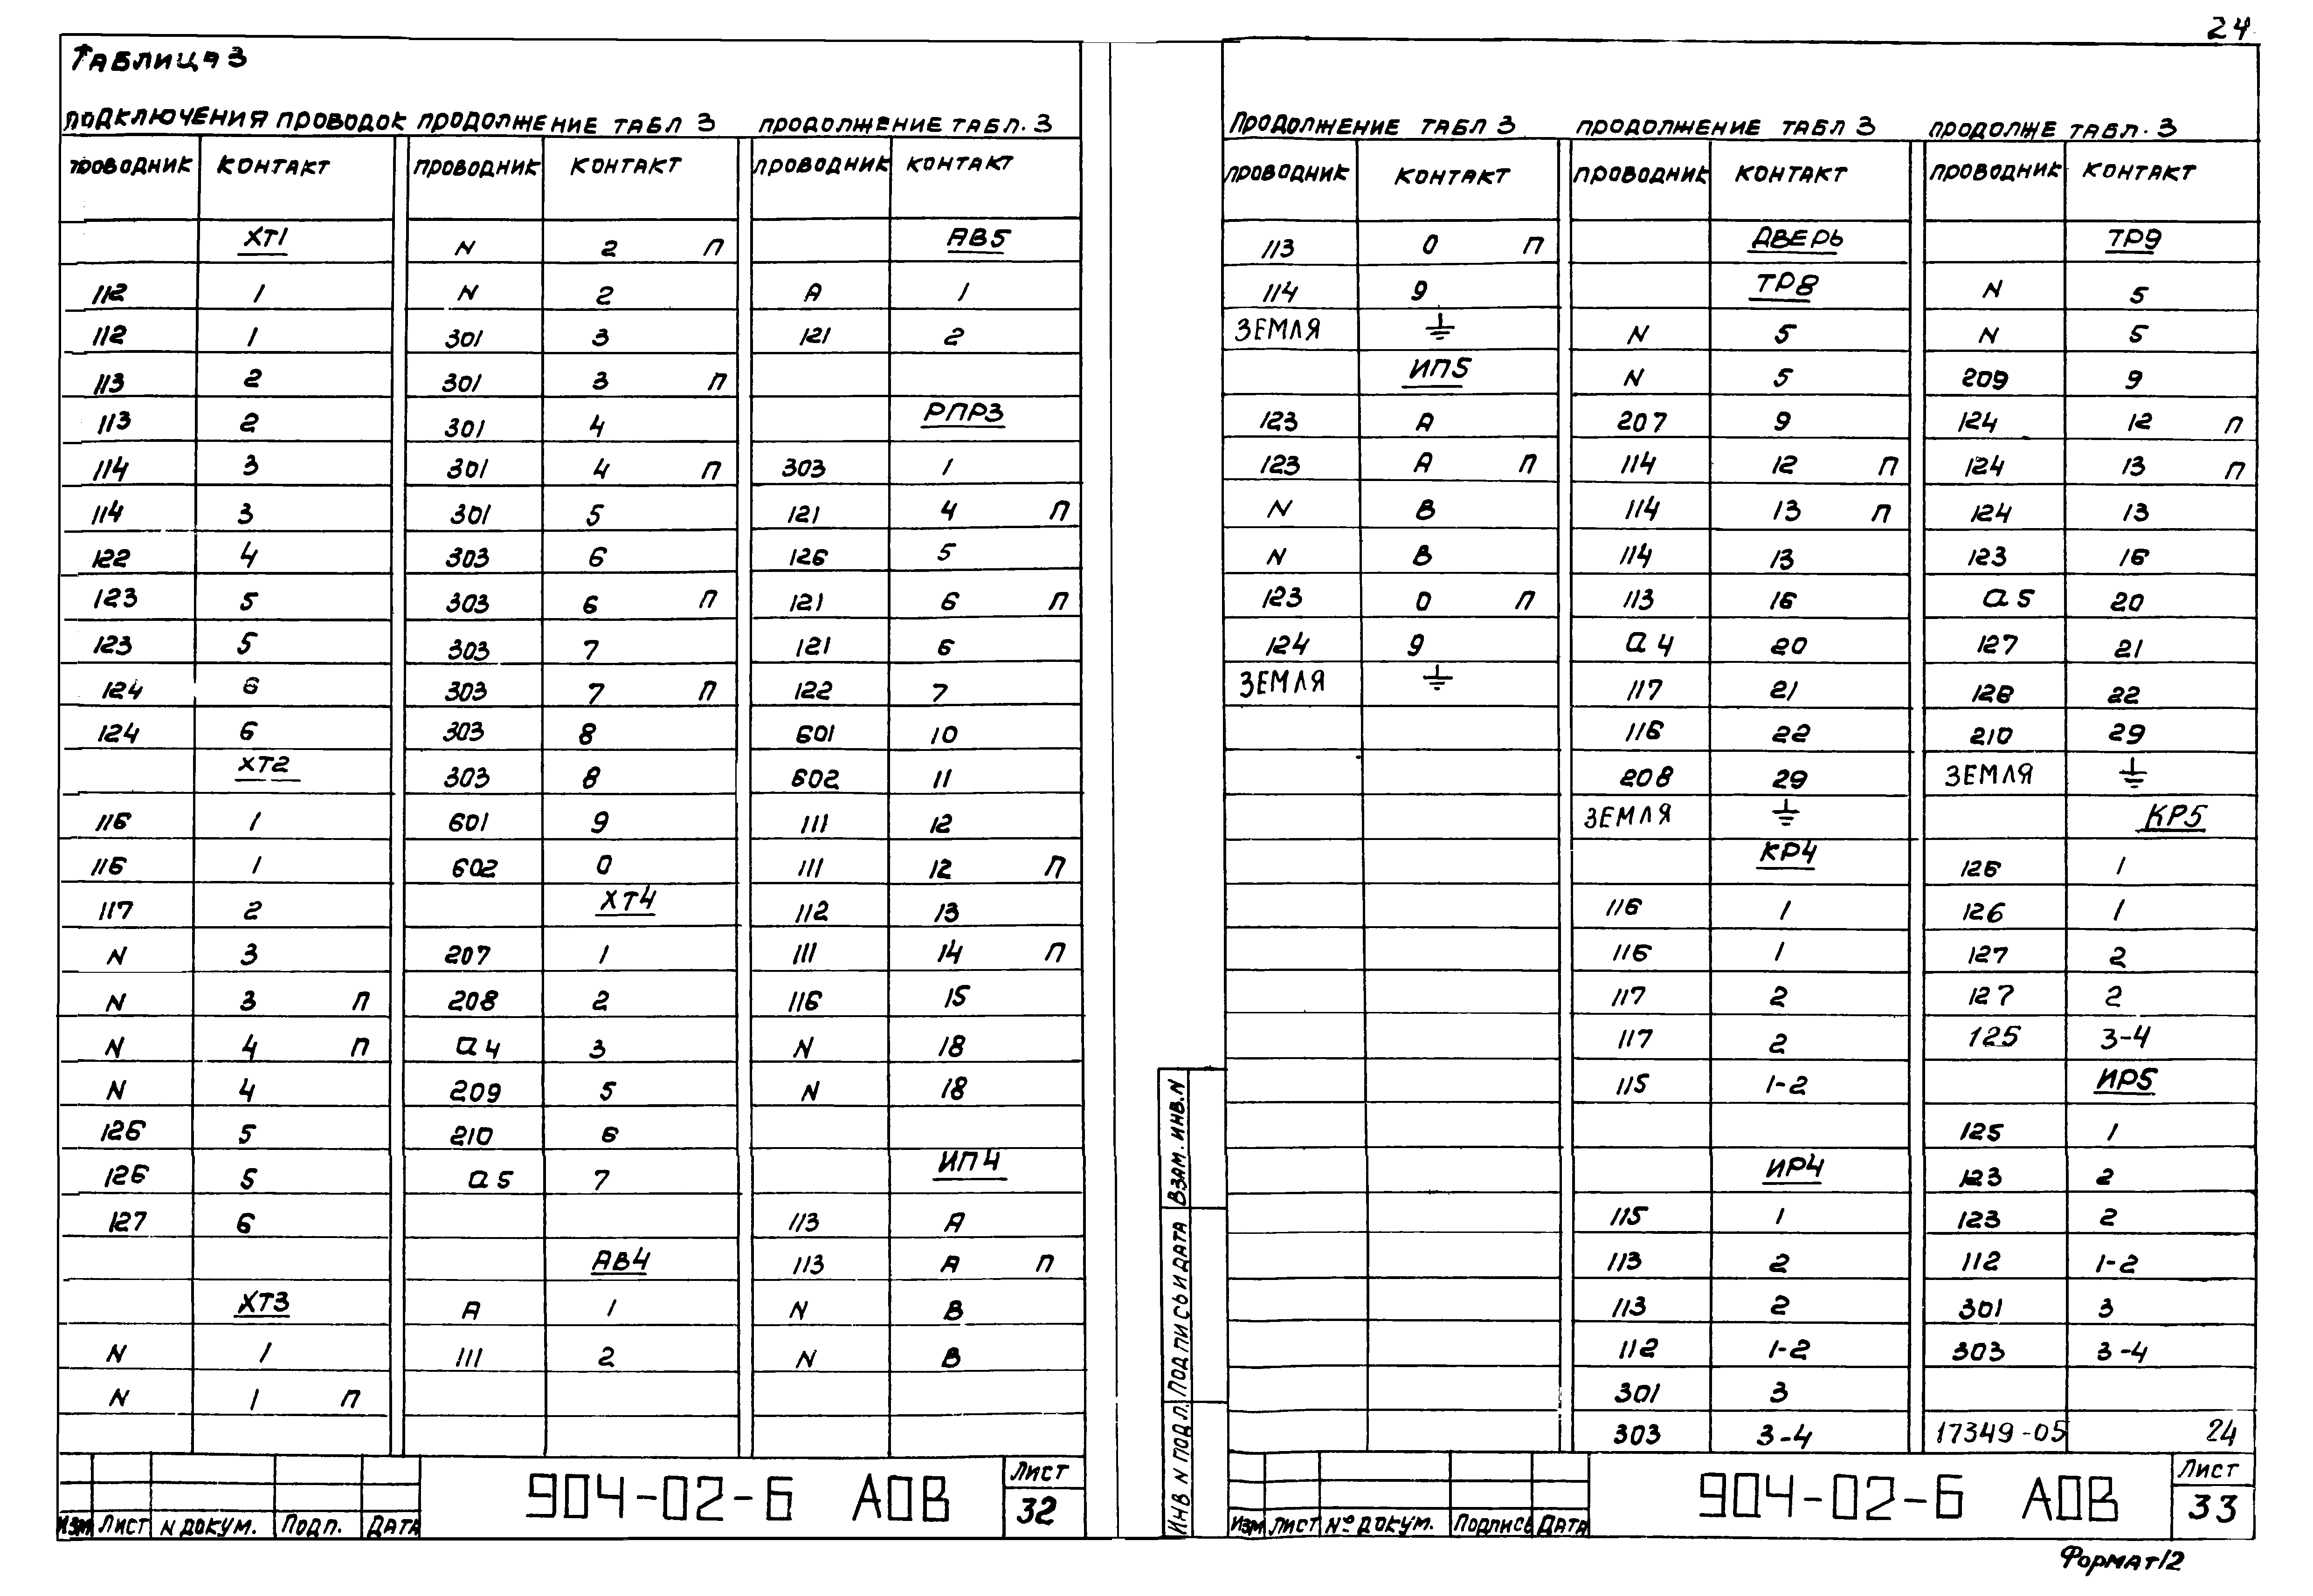 24
Таблица 3
подключения проводок продолжение табл 3 продолжение табл. 3
проводник контакт проводник контакт проводник контакт
ХТ1 N 2 П АВ5
112 1 N 2 А 1
112 1 301 3 121 2
113 2 301 3 П
113 2 301 4 РПР3
114 3 301 4 П 303 1
114 3 301 5 121 4 П
122 4 303 6 126 5
123 5 303 6 П 121 6 П
123 5 303 7 121 6
124 6 303 7 П 122 7
124 6 303 8 601 10
ХТ2 303 8 602 11
116 1 601 9 111 12
116 1 602 0 111 12 П
117 2 ХТ4 112 13
N 3 207 1 111 14 П
N 3 П 208 2 116 15
N 4 П а4 3 N 18
N 4 209 5 N 18
126 5 210 6
126 5 а5 7 ИП4
127 6 113 А
АВ4 113 А П
ХТ3 А 1 N В
N 1 111 2 N В
N 1 П
Изм Лист N докум. Подп. Дата
904-02-6 АОВ
Лист
32
Продолжение табл 3 продолжение табл 3 продолже табл. 3
проводник контакт проводник контакт проводник контакт
113 0 П ДВЕРЬ ТР9
114 9 ТР8 N 5
ЗЕМЛЯ ⏚ N 5 N 5
ИП5 N 5 209 9
123 А 207 9 124 12 П
123 А П 114 12 П 124 13 П
N В 114 13 П 124 13
N В 114 13 123 16
123 0 П 113 16 а5 20
124 9 а4 20 127 21
ЗЕМЛЯ ⏚ 117 21 128 22
116 22 210 29
208 29 ЗЕМЛЯ ⏚
ЗЕМЛЯ ⏚ КР5
КР4 126 1
116 1 126 1
116 1 127 2
117 2 127 2
117 2 125 3-4
115 1-2 ИР5
125 1
ИР4 123 2
115 1 123 2
113 2 112 1-2
113 2 301 3
112 1-2 303 3-4
301 3
303 3-4 17349-05 24
Инв N подл. Подпись и дата Взам. инв. N
Изм Лист № докум. Подпись Дата
904-02-6 АОВ
Лист
33
Формат 12